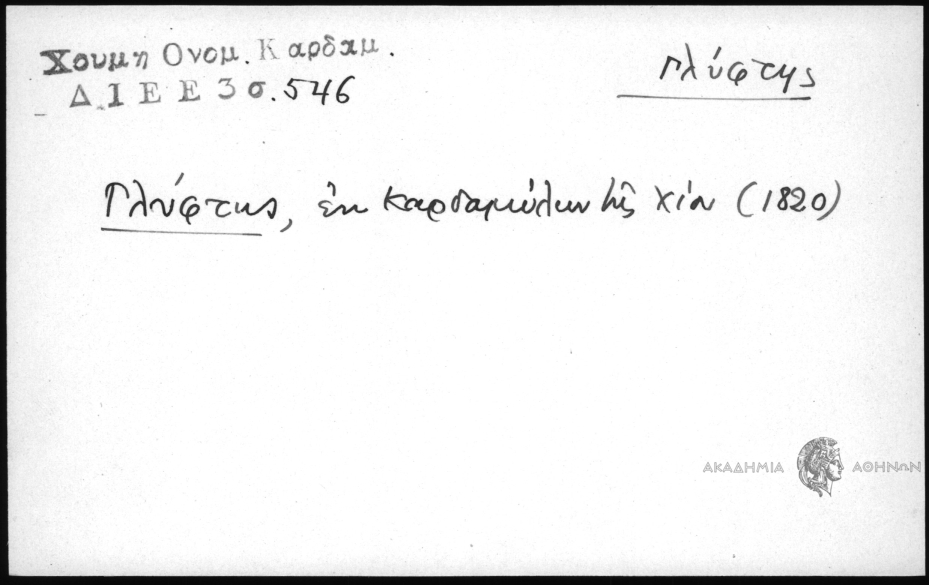 Χουμη Ονομ. Καρδαμ.
Δ Ι Ε Ε 3 σ. 546
Γλύφτης
Γλύφτης, ἐκ Καρδαμύλων τῆς Χίου (1820)
ΑΚΑΔΗΜΙΑ ΑΘΗΝΩΝ